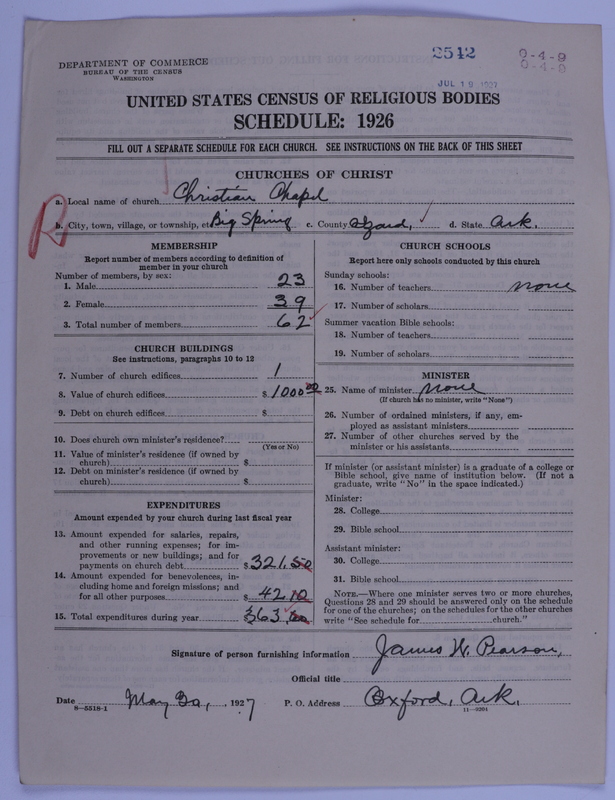 DEPARTMENT OF COMMERCE
BUREAU OF THE CENSUS
WASHINGTON
2542
0-4-9
0-4-9
JUL 19 1927
UNITED STATES CENSUS OF RELIGIOUS BODIES
SCHEDULE: 1926
FILL OUT A SEPARATE SCHEDULE FOR EACH CHURCH. SEE INSTRUCTIONS ON THE BACK OF THIS SHEET
CHURCHES OF CHRIST
a. Local name of church Christian Chapel
b. City, town, village, or township, etc Big Spring c. County Izard, d. State Ark.
R
MEMBERSHIP
Report number of members according to definition of
member in your church
Number of members, by sex:
1. Male 23
2. Female 39
3. Total number of members 62
CHURCH BUILDINGS
See instructions, paragraphs 10 to 12
7. Number of church edifices 1
8. Value of church edifices $1000 00
9. Debt on church edifices $
10. Does church own minister's residence?
(Yes or No)
11. Value of minister's residence (if owned by
church) $
12. Debt on minister's residence (if owned by
church) $
EXPENDITURES
Amount expended by your church during last fiscal year
13. Amount expended for salaries, repairs,
and other running expenses; for im-
provements or new buildings; and for
payments on church debt $321.50
14. Amount expended for benevolences, in-
cluding home and foreign missions; and
for all other purposes $42 10
15. Total expenditures during year $363.60
CHURCH SCHOOLS
Report here only schools conducted by this church
Sunday schools:
16. Number of teachers none
17. Number of scholars
Summer vacation Bible schools:
18. Number of teachers
19. Number of scholars
MINISTER
25. Name of minister none
(If church has no minister, write "None")
26. Number of ordained ministers, if any, em-
ployed as assistant ministers
27. Number of other churches served by the
minister or his assistants
If minister (or assistant minister) is a graduate of a college or
Bible school, give name of institution below. (If not a
graduate, write "No" in the space indicated.)
Minister:
28. College
29. Bible school
Assistant minister:
30. College
31. Bible school
NOTE.—Where one minister serves two or more churches,
Questions 28 and 29 should be answered only on the schedule
for one of the churches; on the schedules for the other churches
write "See schedule for church."
Signature of person furnishing information James W. Pearson,
Official title
Date May 30, 1927 P. O. Address Oxford, Ark.
8—5518-1